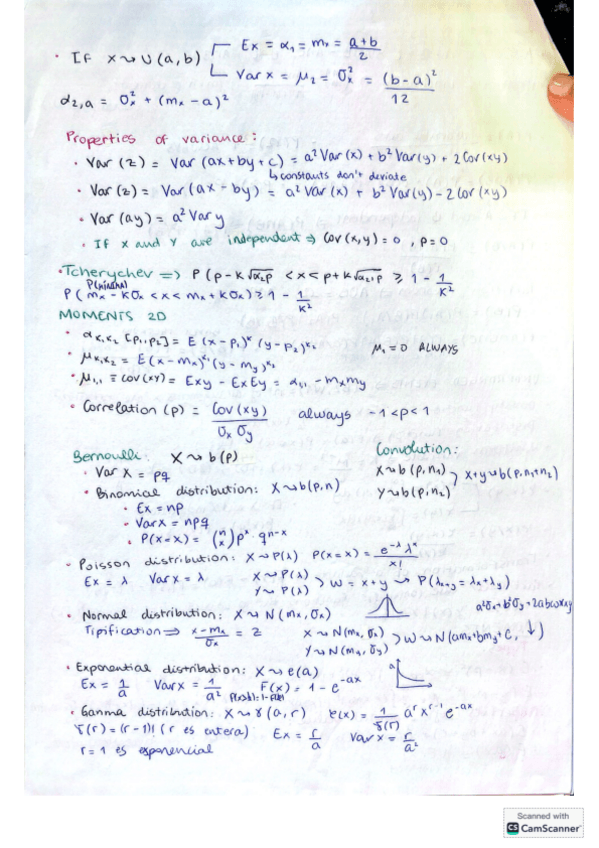 · If X ~ U(a,b) Ex = α₁ = mₓ = (a+b)/2
Var x = μ₂ = σₓ² = (b-a)²/12
α₂,ₐ = σₓ² + (mₓ - a)²
Properties of variance:
· Var (z) = Var (ax+by+c) = a² Var(x) + b² Var(y) + 2 Cov(xy)
↳ constants don't deviate
· Var (z) = Var (ax - by) = a² Var(x) + b² Var(y) - 2 Cov (xy)
· Var (ay) = a² Var y
· If X and Y are independent ⇒ Cov (x,y) = 0 , ρ = 0
· Tcherychev ⇒ P(p-K√α₂,p < x < p+K√α₂,p ≥ 1 - 1/K²
P( mₓ - Kσₓ < x < mₓ + Kσₓ) ≥ 1 - 1/K²
MOMENTS 2D
· α K₁K₂ [p₁,p₂] = E (x - p₁)^K₁ (y - p₂)^K₂ μ₁ = 0 ALWAYS
· μ K₁K₂ = E (x - mₓ)^K₁ (y - m_y)^K₂
· μ₁,₁ = cov(xy) = Exy - ExEy = α₁,₁ - mₓm_y
· Correlation (ρ) = Cov (xy) / σₓ σ_y always -1 < ρ < 1
Bernoulli: X ~ b(p) Convolution:
· Var X = pq X ~ b(p, n₁) > x+y ~ b(p, n₁+n₂)
· Binomial distribution: X ~ b(p,n) Y ~ b(p, n₂)
· Ex = np
· Var x = npq
· P(x=x) = (n x) pˣ · qⁿ⁻ˣ
· Poisson distribution: X ~ P(λ) P(x=x) = e^-λ λˣ / x!
Ex = λ Var x = λ X ~ P(λ) > w = x+y ~ P(λₓ₊y = λₓ + λ_y)
Y ~ P(λ)
· Normal distribution: X ~ N(mₓ, σₓ)
Tipification ⇒ (x - mₓ)/σₓ = z X ~ N(mₓ, σₓ) > w ~ N(amₓ + bm_y + c, ↓)
Y ~ N(m_y, σ_y)
· Exponential distribution: X ~ e(a)
Ex = 1/a Var x = 1/a² F(x) = 1 - e^-ax
· Gamma distribution: X ~ γ(a,r) f(x) = 1/γ(r) aʳ xʳ⁻¹ e^-ax
γ(r) = (r-1)! (r es entera) Ex = r/a Var x = r/a²
r = 1 es exponencial
Scanned with
CS CamScanner